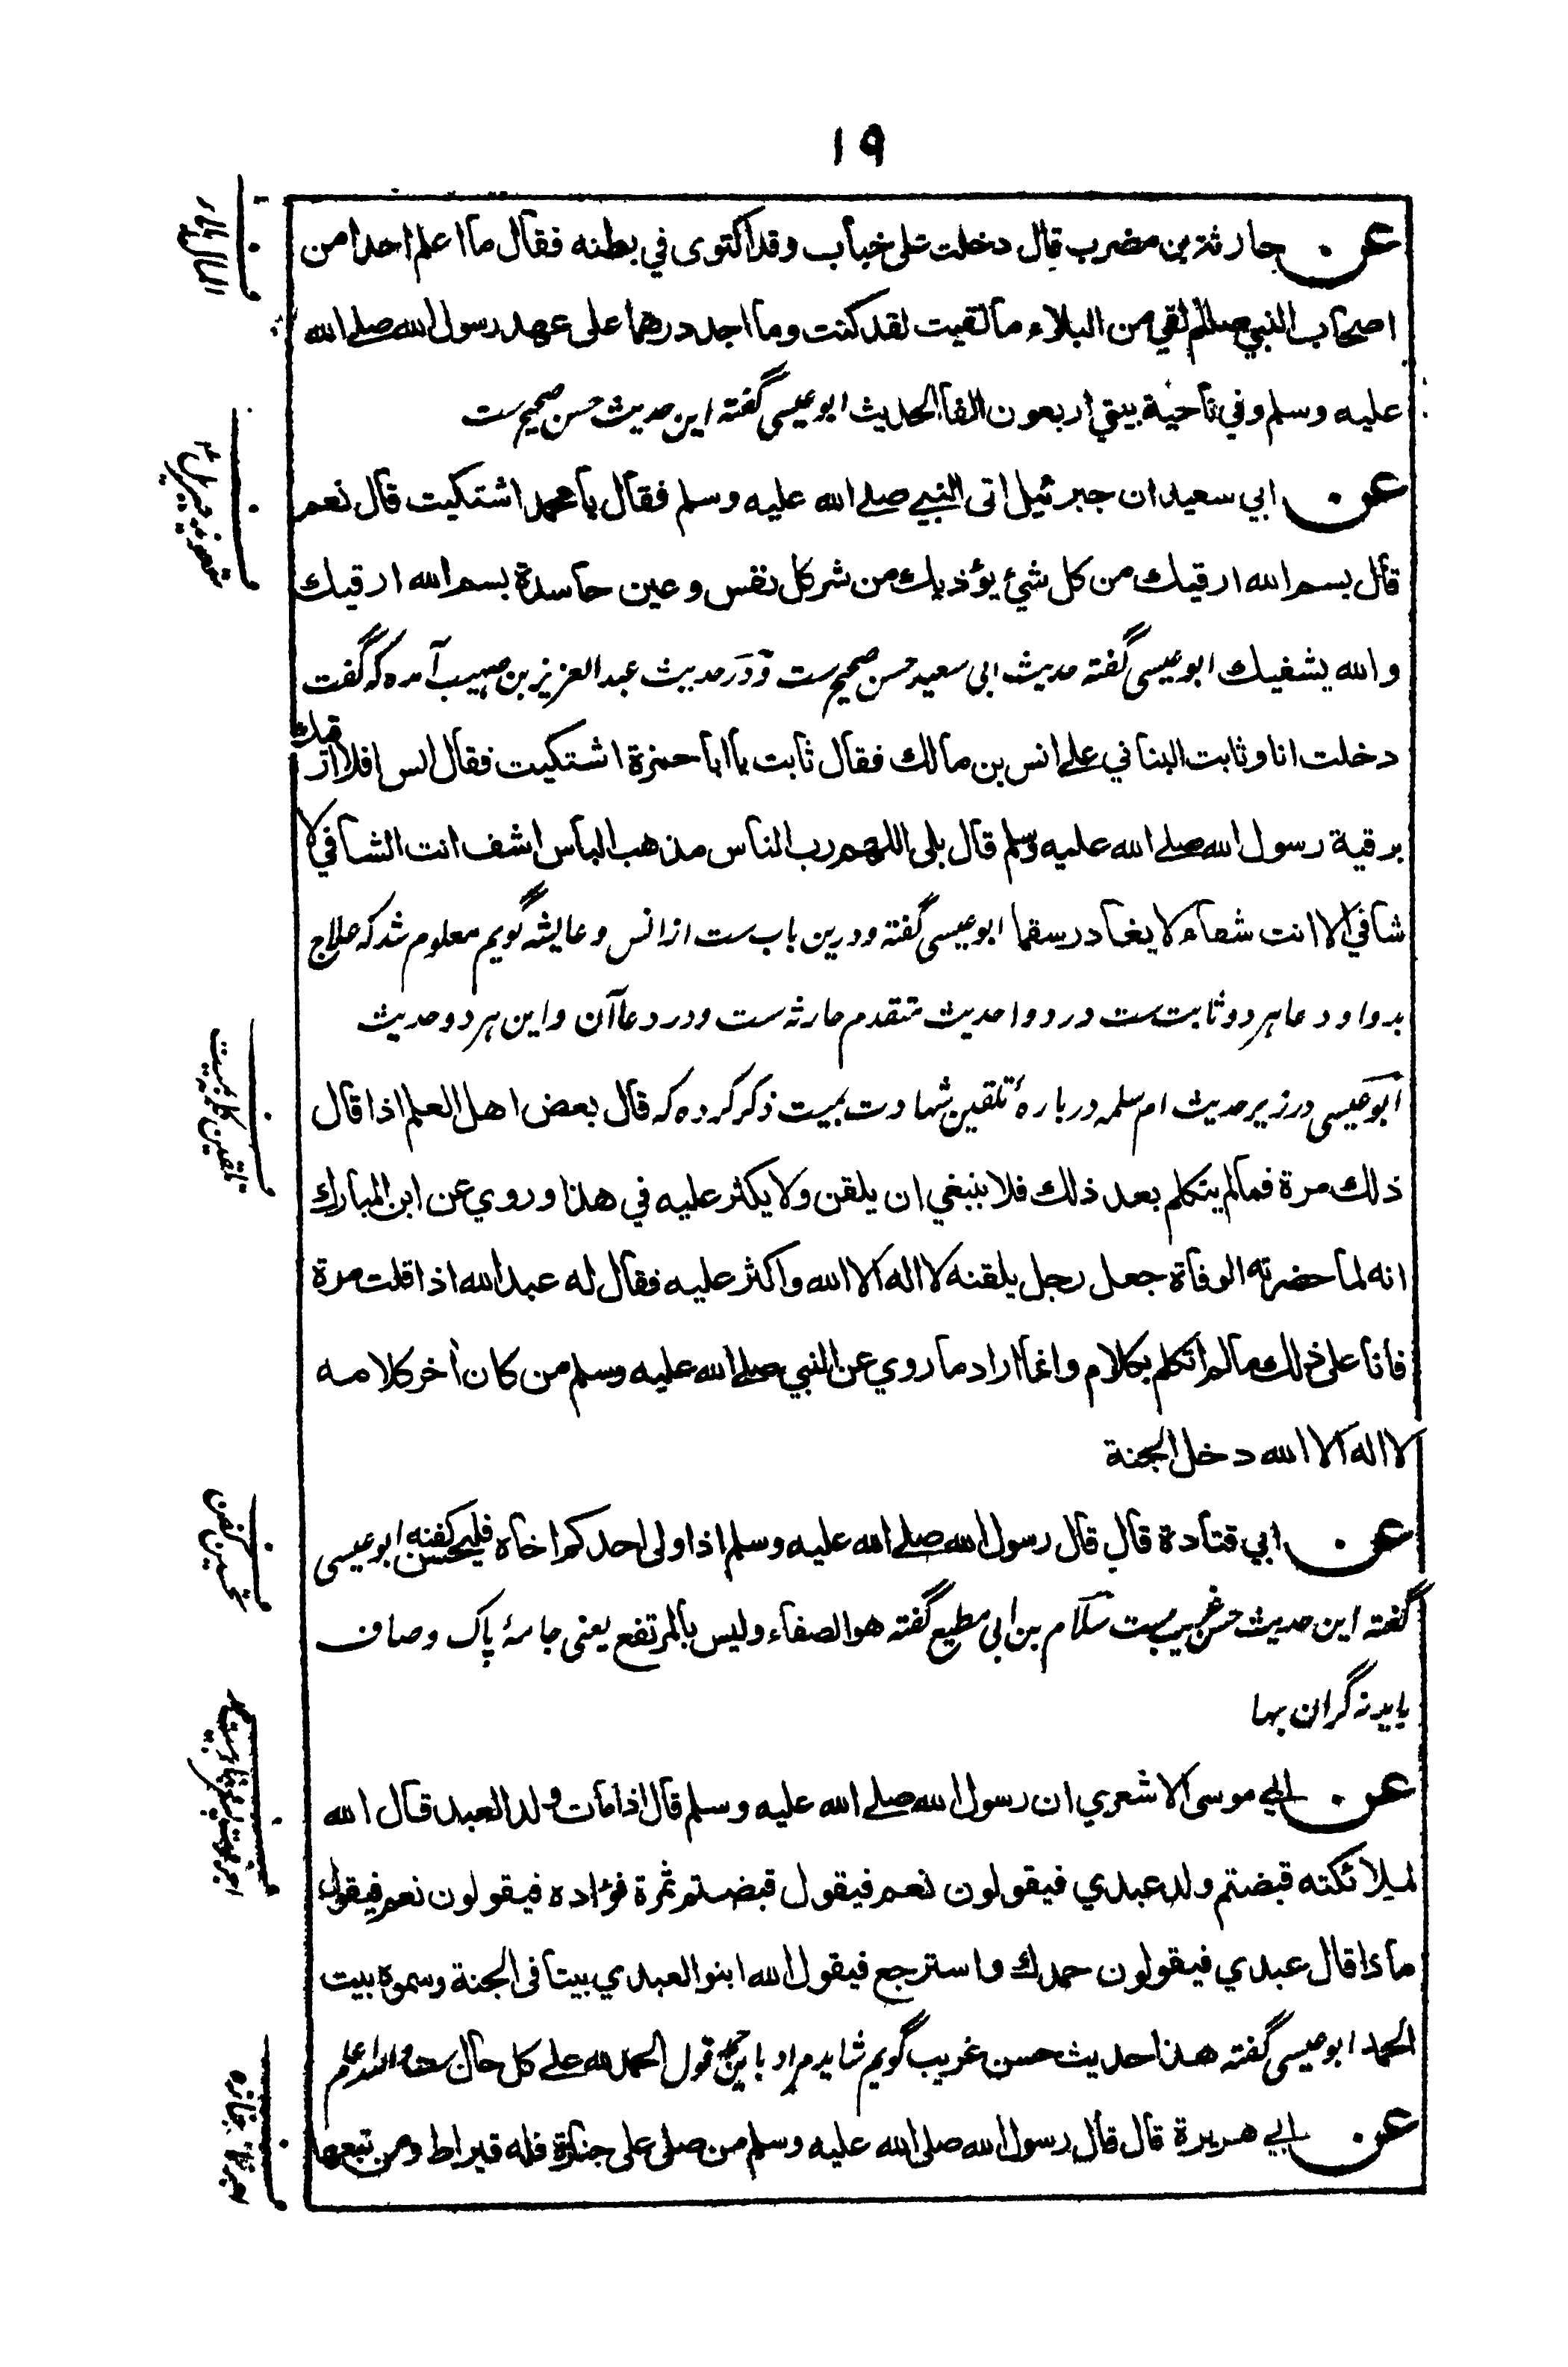 ١٩
عن حارثة بن مضرب قال دخلت على خباب وقد اكتوى في بطنه فقال ما اعلم احدا من
اصحاب النبي صللم لقي من البلاء ما لقيت لقد كنت وما اجد درهما على عهد رسول الله صلى الله
عليه وسلم وفي ناحية بيتي اربعون الفا الحديث ابو عيسى گفته این حدیث حسن صحیح ست
عن ابي سعيد ان جبرئيل اتى النبي صلى الله عليه وسلم فقال يا محمد اشتكيت قال نعم
قال بسم الله ارقيك من كل شيء يؤذيك من شر كل نفس وعين حاسدة بسم الله ارقيك
والله يشفيك ابو عیسی گفته حدیث ابی سعید حسن صحیح ست و در حدیث عبد العزیز بن صهیب آمده که گفت
دخلت انا وثابت البناني على انس بن مالك فقال ثابت يا ابا حمزة اشتكيت فقال انس افلا ارقيك
برقية رسول الله صلى الله عليه وسلم قال بلى اللهم رب الناس مذهب الباس اشف انت الشافي لا
شافي الا انت شفاء لا يغادر سقما ابو عیسی گفته و درین باب ست از انس و عایشه گویم معلوم شد که علاج
بدوا و دعا هر دو ثابت ست در دوا حدیث متقدم حارثه ست و در دعا آن و این هر دو حدیث
ابو عیسی در زیر حدیث ام سلمه دربارهٔ تلقین شهادت بمیت ذکر کرده که قال بعض اهل العلم اذا قال
ذلك مرة فما لم يتكلم بعد ذلك فلا ينبغي ان يلقن ولا يكثر عليه في هذا وروي عن ابن المبارك
انه لما حضرته الوفاة جعل رجل يلقنه لا اله الا الله واكثر عليه فقال له عبد الله اذا قلت مرة
فانا على ذلك ما لم اتكلم بكلام وانما اراد ما روي عن النبي صلى الله عليه وسلم من كان أخر كلامه
لا اله الا الله دخل الجنة
عن ابي قتادة قال قال رسول الله صلى الله عليه وسلم اذا ولى احدكم اخاه فليحسن كفنه ابو عیسی
گفته این حدیث حسن غریب ست سلام بن ابی مطیع گفته هو الصفاء وليس بالمرتفع یعنی جامهٔ پاک و صاف
باید نه گران بها
عن ابي موسى الاشعري ان رسول الله صلى الله عليه وسلم قال اذا مات ولد العبد قال الله
لملائكته قبضتم ولد عبدي فيقولون نعم فيقول قبضتم ثمرة فؤاده فيقولون نعم فيقول
ماذا قال عبدي فيقولون حمدك واسترجع فيقول الله ابنوا لعبدي بيتا في الجنة وسموه بيت
الحمد ابو عیسی گفته هذا حديث حسن غريب گویم شاید مراد باین حمد قول الحمد لله على كل حال ست والله اعلم
عن ابي هريرة قال قال رسول الله صلى الله عليه وسلم من صلى على جنازة فله قيراط ومن تبعها
ف
ف
تعوید جبریل
ف
تلقین کلمه بمیت
ف
تحسین کفن
ف
ف